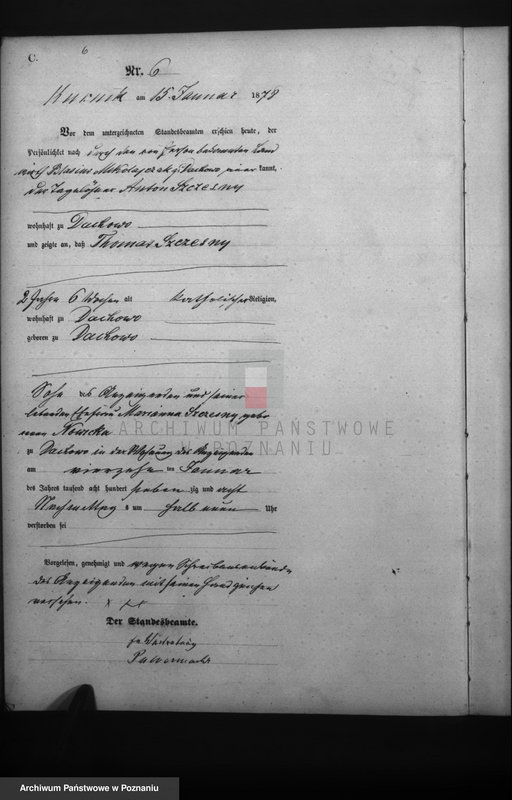 6
C.
Nr. 6
Kurnik am 15. Januar 1878
Vor dem unterzeichneten Standesbeamten erschien heute, der
Persönlichkeit nach durch den von Person bekannten Land
wirth Blasius Mikolajczak z. Dachowo, kannt,
der Tagelöhner Anton Szczesny
wohnhaft zu Dachowo
und zeigte an, daß Thomas Szczesny
2 Jahre 6 Wochen alt katholischer Religion,
wohnhaft zu Dachowo
geboren zu Dachowo
Sohn des Anzeigenden und seiner
lebenden Ehefrau Marianna Szczesny gebo
renen Nowicka
zu Dachowo in der Wohnung des Anzeigenden
am vierzehn ten Januar
des Jahres tausend acht hundert sieben zig und acht
Nachmittag s um halb neun Uhr
verstorben sei
Vorgelesen, genehmigt und wegen Schreibensunkunde
des Anzeigenden mit seinem Handzeichen
versehen. x x x
Der Standesbeamte.
In Vertretung
ARCHIWUM PAŃSTWOWE
W POZNANIU
Archiwum Państwowe w Poznaniu